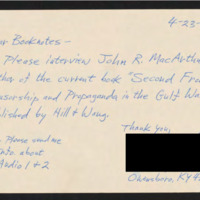 4-23-
ur Booknotes -
Please interview John R. MacArthu
thor of the current book "Second Fro
nsorship and Propaganda in the Gulf Wa
blished by Hill & Wang.
Thank you,
. Please send me
info. about
Audio 1 & 2
Owensboro, KY 4